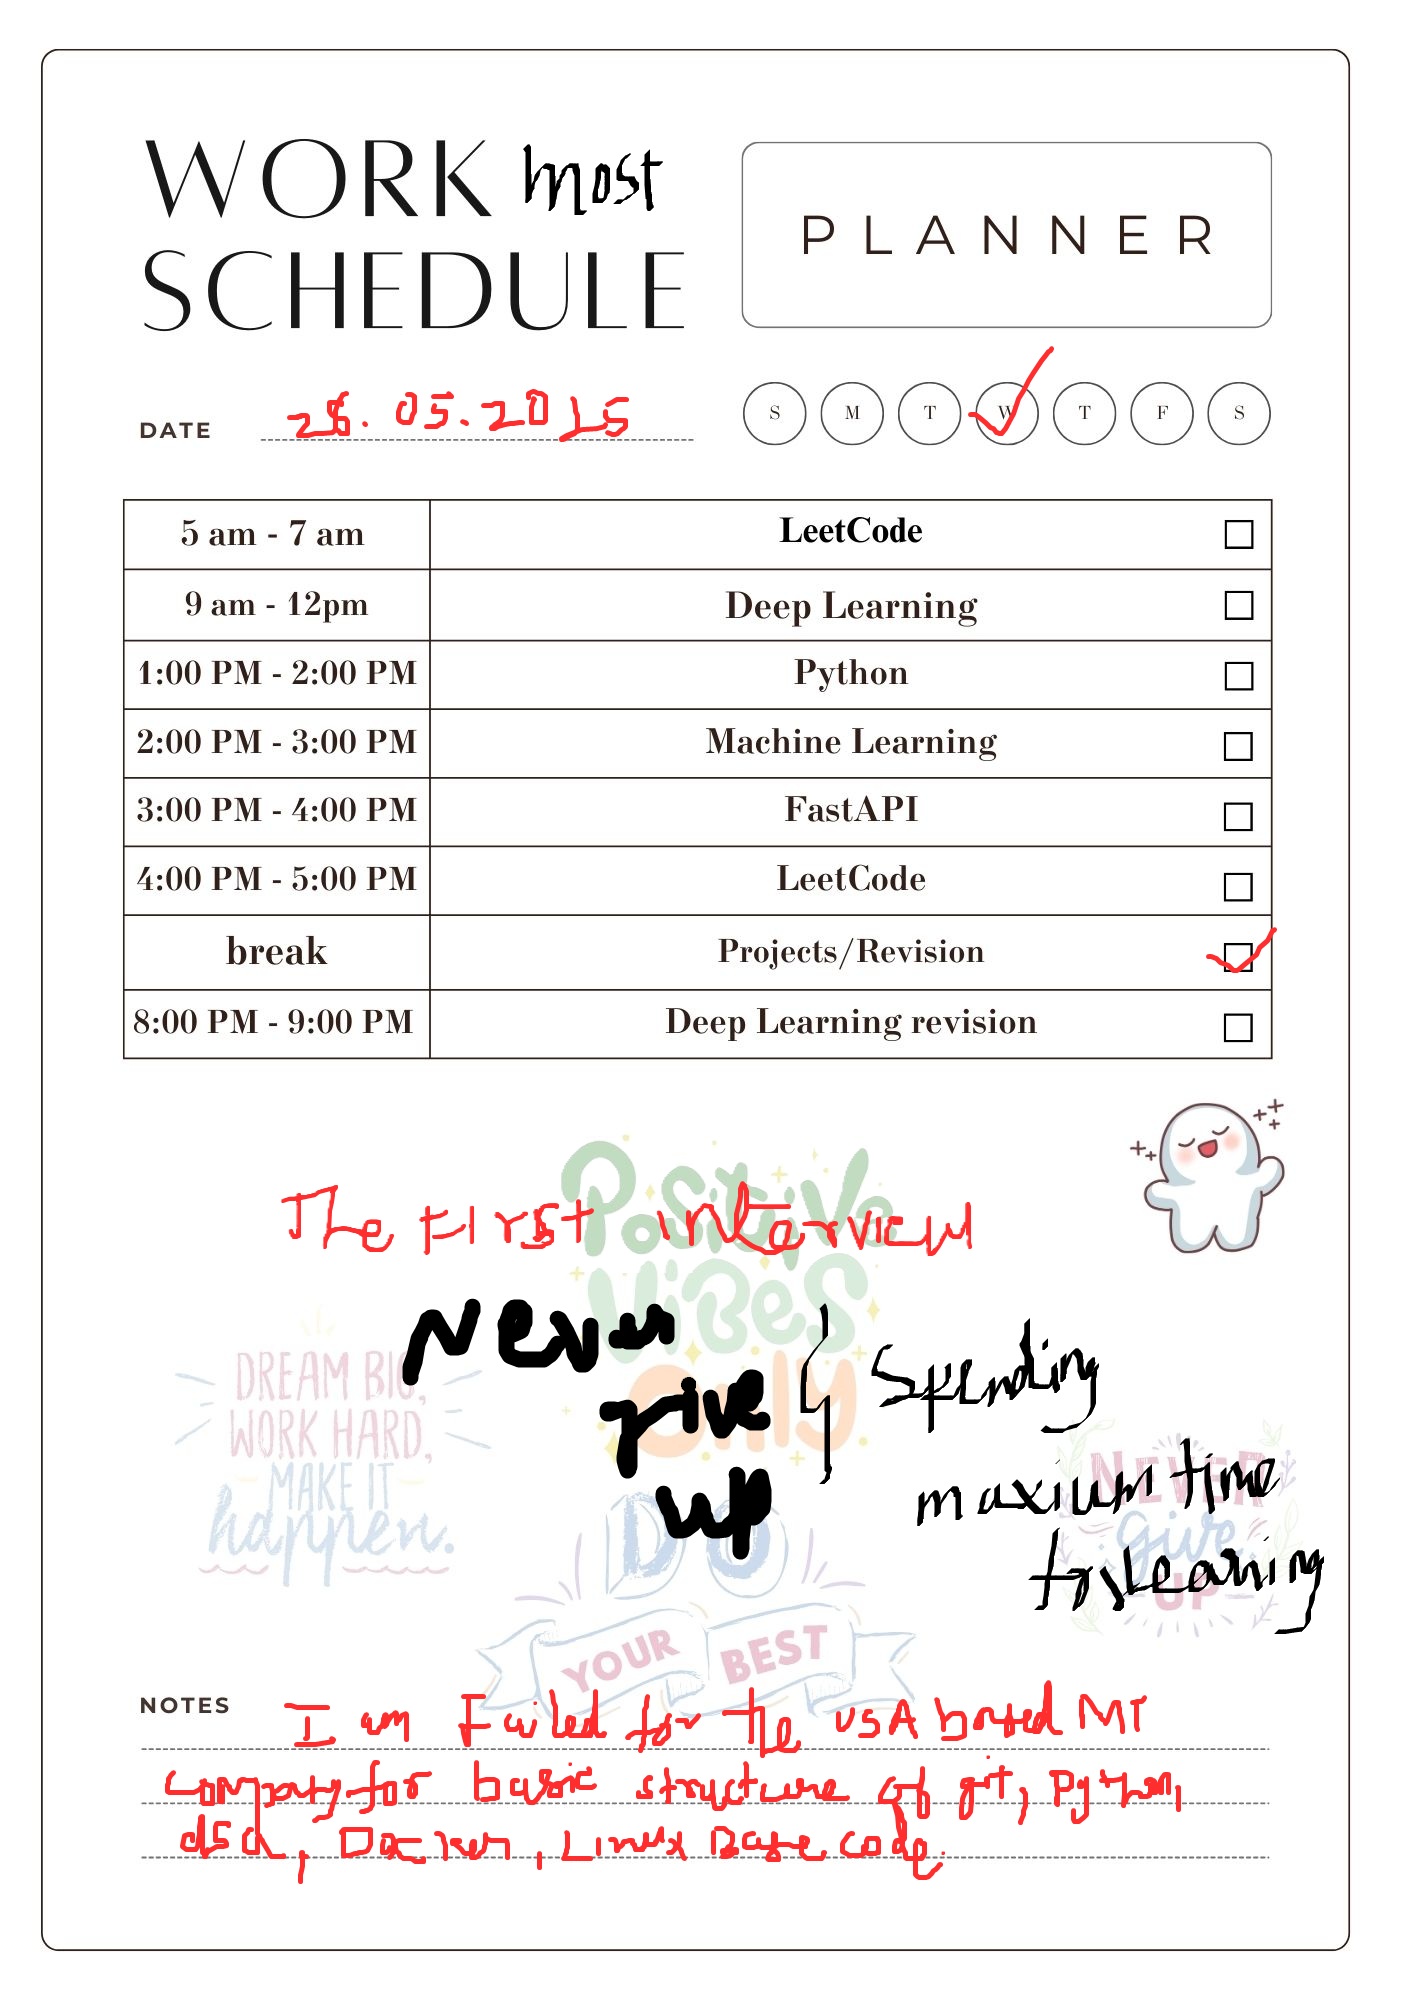 WORK most
SCHEDULE
PLANNER
DATE 28.05.2025
S M T W T F S
5 am - 7 am LeetCode
9 am - 12pm Deep Learning
1:00 PM - 2:00 PM Python
2:00 PM - 3:00 PM Machine Learning
3:00 PM - 4:00 PM FastAPI
4:00 PM - 5:00 PM LeetCode
break Projects/Revision
8:00 PM - 9:00 PM Deep Learning revision
POSiTiVe
ViBeS
Only
The First interview
Never
give
up
Spending
maxium time
for Learning
DREAM BIG,
WORK HARD,
MAKE IT
happen.
NEVER
give
UP
DO
YOUR BEST
NOTES I am Failed for the USA bated
company for basic structure of git, python,
dsa, Docker, Linux Base code.